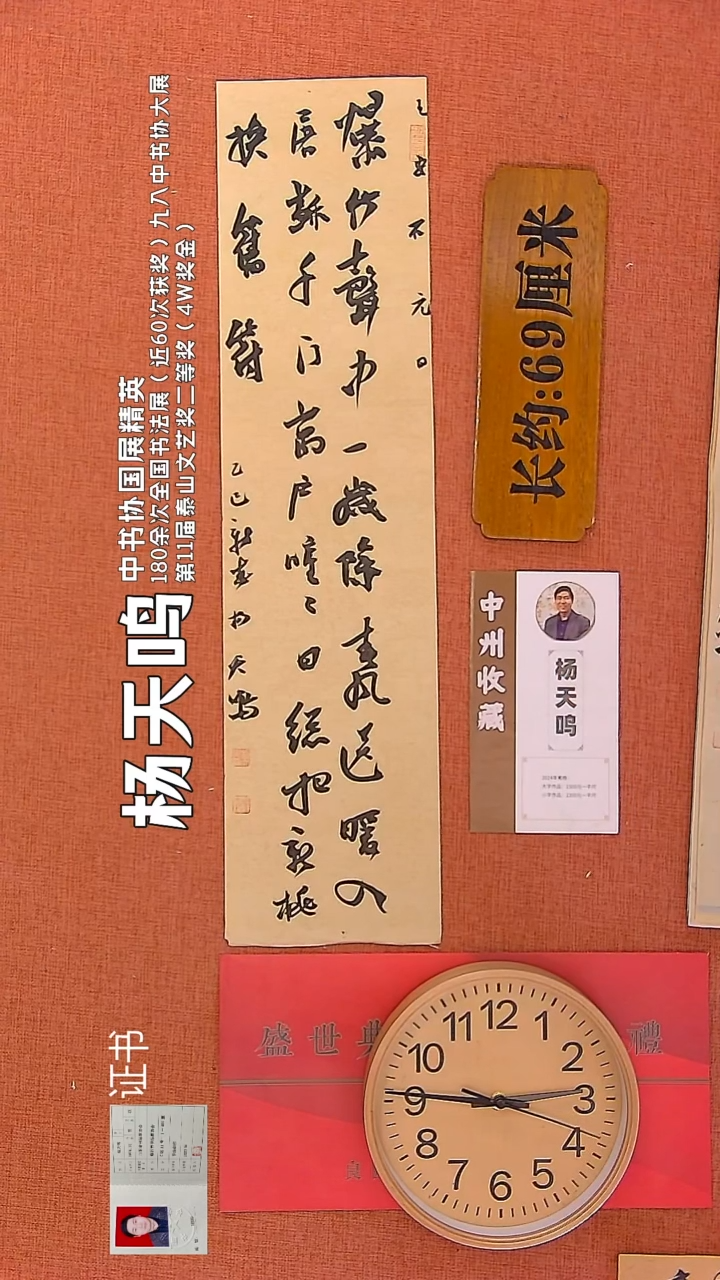 杨天鸣
中书协国展精英
180余次全国书法展（近60次获奖）九八中书协大展
第11届泰山文艺奖二等奖（4W奖金）
王安石 元日
爆竹聲中一歲除春風送暖入
屠蘇千门萬户曈々日總把新桃
換舊符
乙巳新春 杨天鸣
长约:69厘米
中州收藏
杨天鸣
证书
盛世典
禮
12
1
2
3
4
5
6
7
8
9
10
11